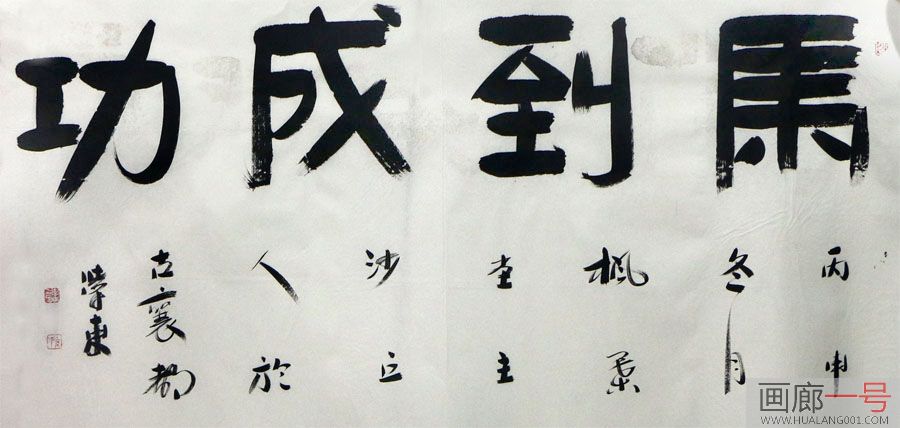 馬到成功
丙申
冬月
枫叶
堂主
沙丘
人於
古襄都
荣东
画廊一号
WWW.HUALANG001.COM